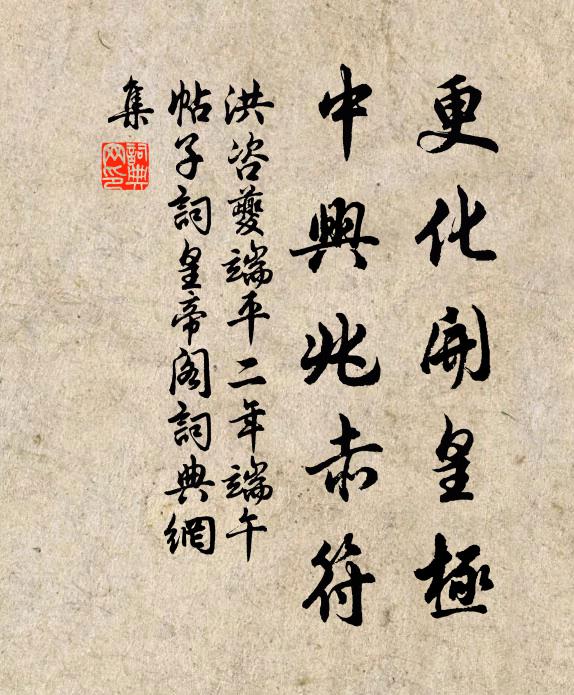 更化開皇極
中興兆赤符
洪咨夔端平二年端午
帖子詞皇帝閣詞典網
集
詞典網印